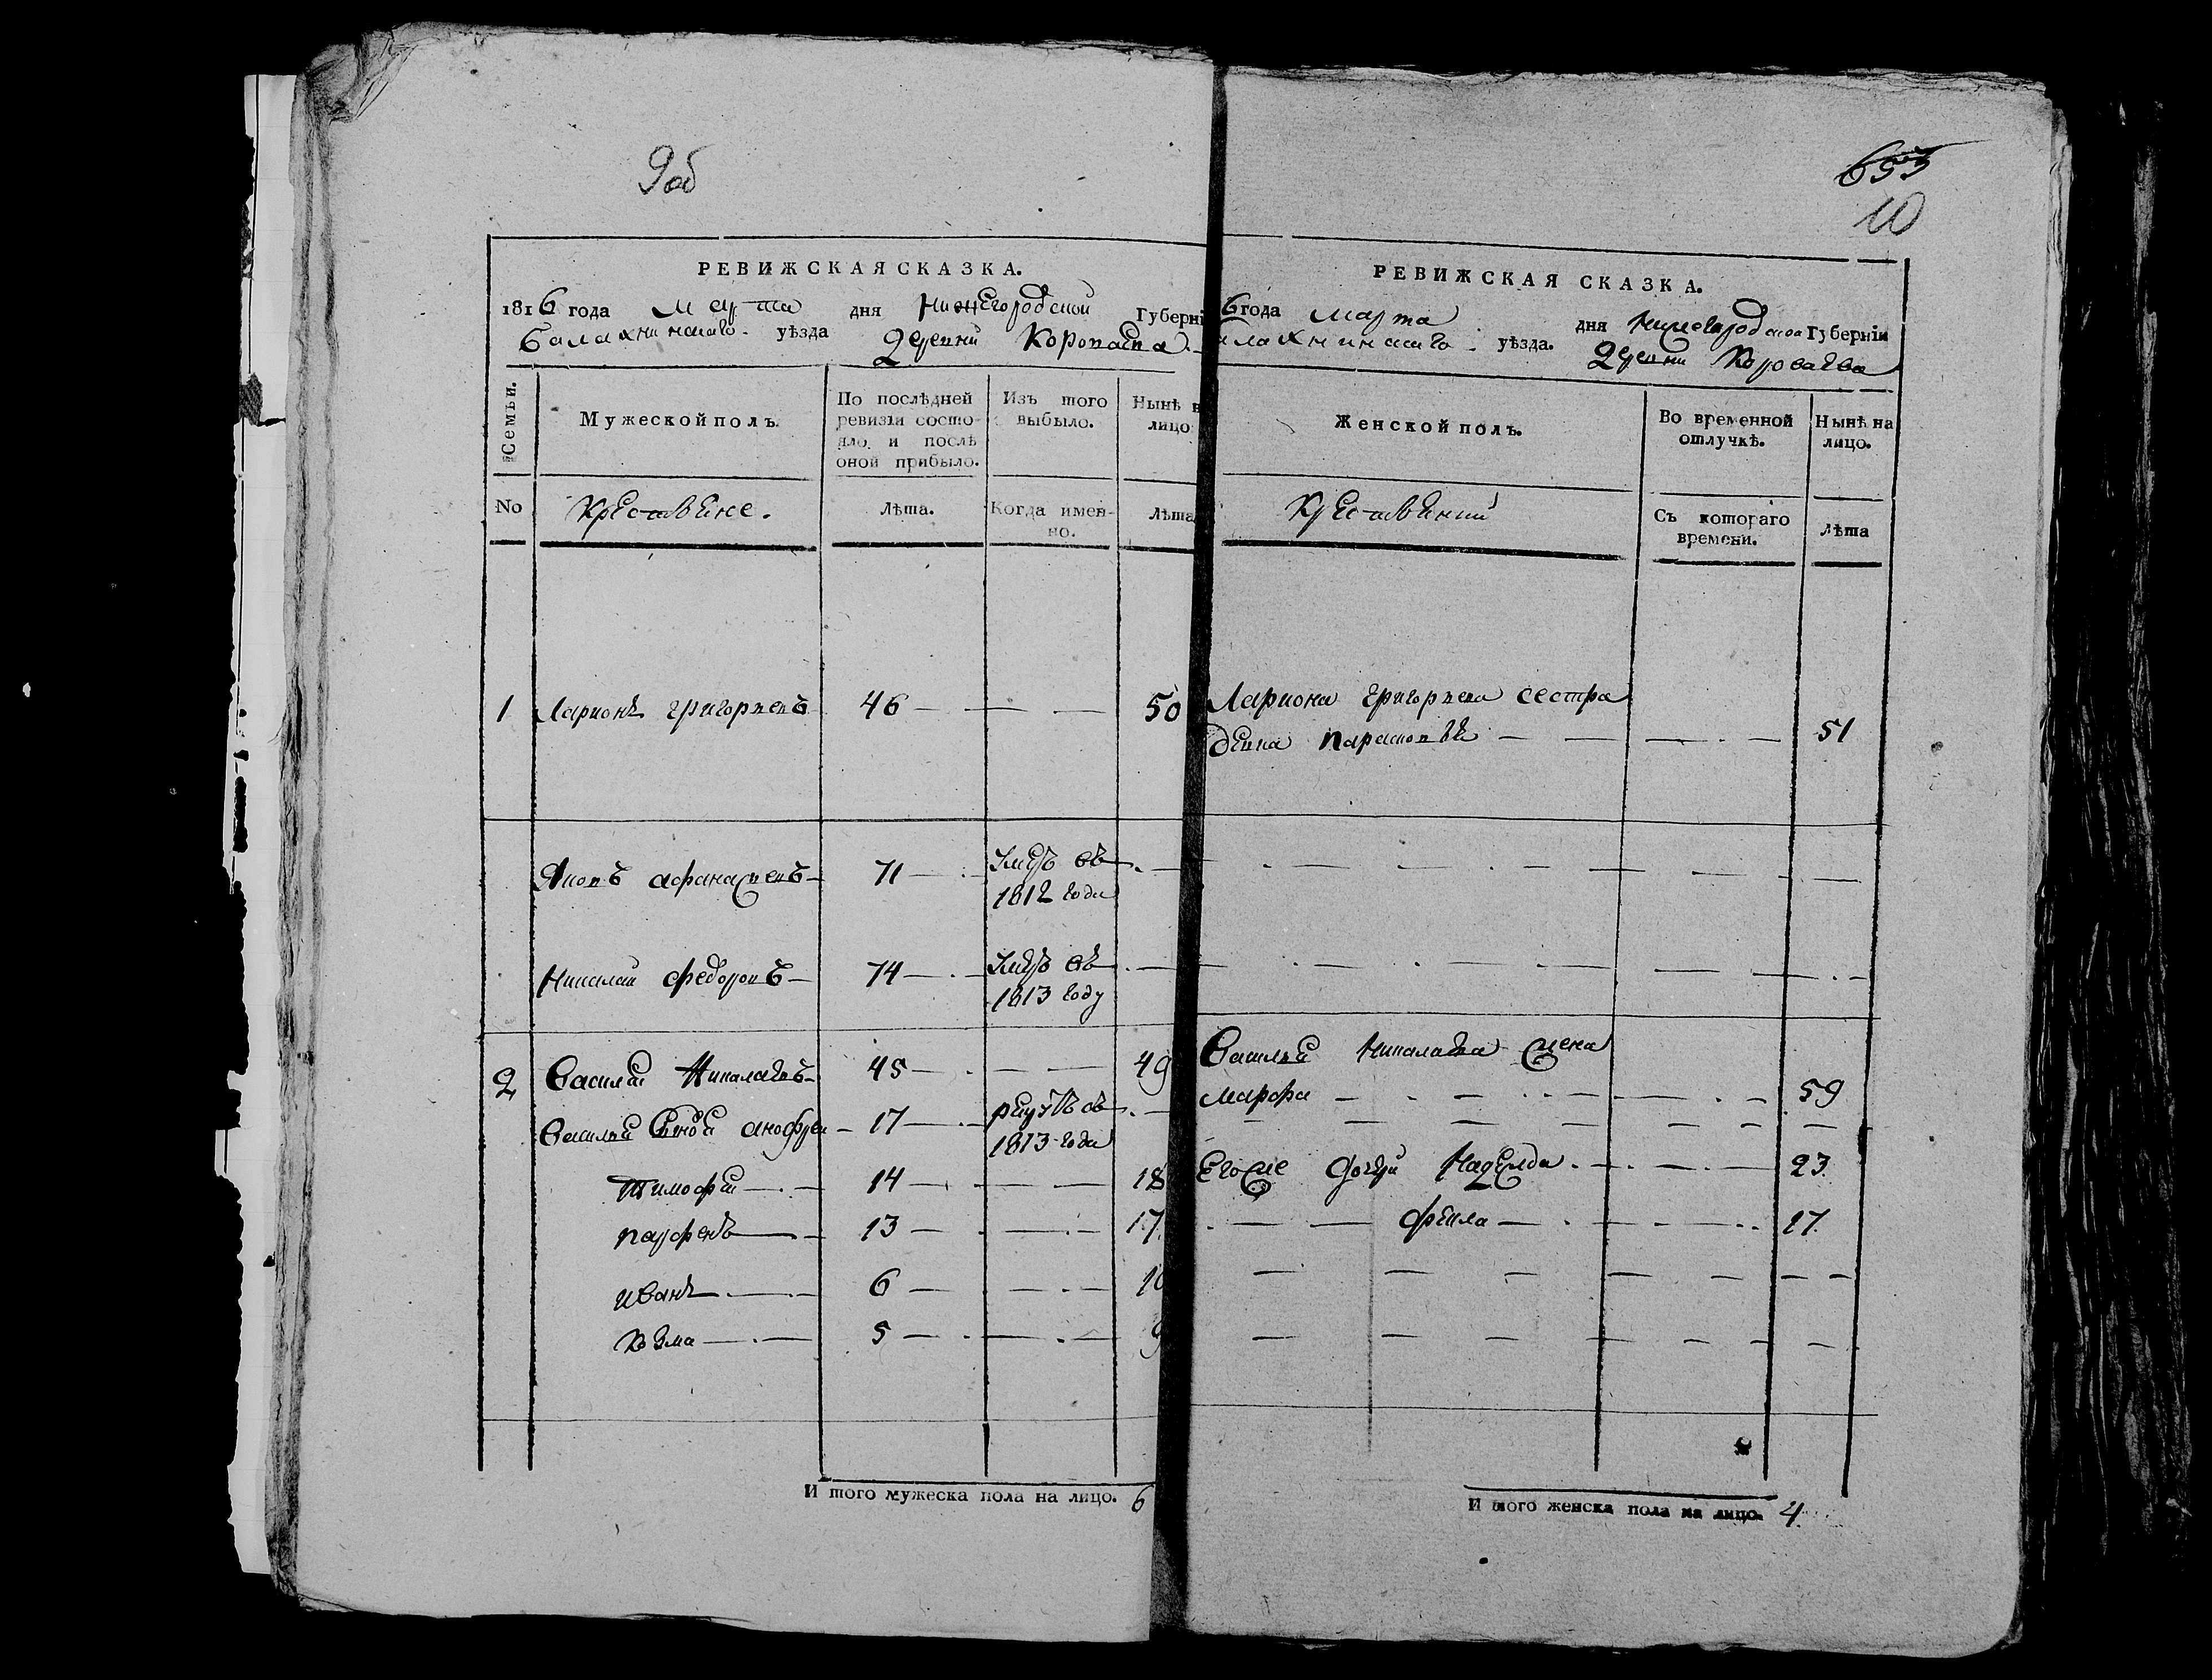 9об
РЕВИЖСКАЯ СКАЗКА.
1816 года марта дня Нижегородской Губерні
балахнинскаго уѣзда деревни
Семьи.
Мужеской полъ.
По послѣдней ревизіи состояло и послѣ оной прибыло.
Изъ того выбыло.
Нынѣ н лицо
No
Крестьяне.
лѣта.
Когда именно.
лѣта
1 Ларионъ григорьевъ 46 — — — 50
афанасьевъ — 71 — умеръ въ 1812 года
Николай федоровъ — 74 — умеръ въ 1813 году
2 Василей Николаевъ — 45 — — — 49
Василья анофрей — 17 — въ 1813 года
Тимофей — 14 — — — 18
парфенъ — 13 — — — 17
иванъ — 6 — — — 10
козма — 5 — — — 9
И того мужеска пола на лицо. 6
653
10
РЕВИЖСКАЯ СКАЗКА.
6 года марта дня Нижегородской Губерніи
алахнинскаго уѣзда. деревни
Женской полъ.
Во временной отлучкѣ.
Нынѣ на лицо.
Съ котораго времени.
лѣта
Лариона григорьева сестра
51
Василья Николаева жена
марфа — 59
Его же дочери Надежда — 23
фекла — 17
И того женска пола на лицо. 4